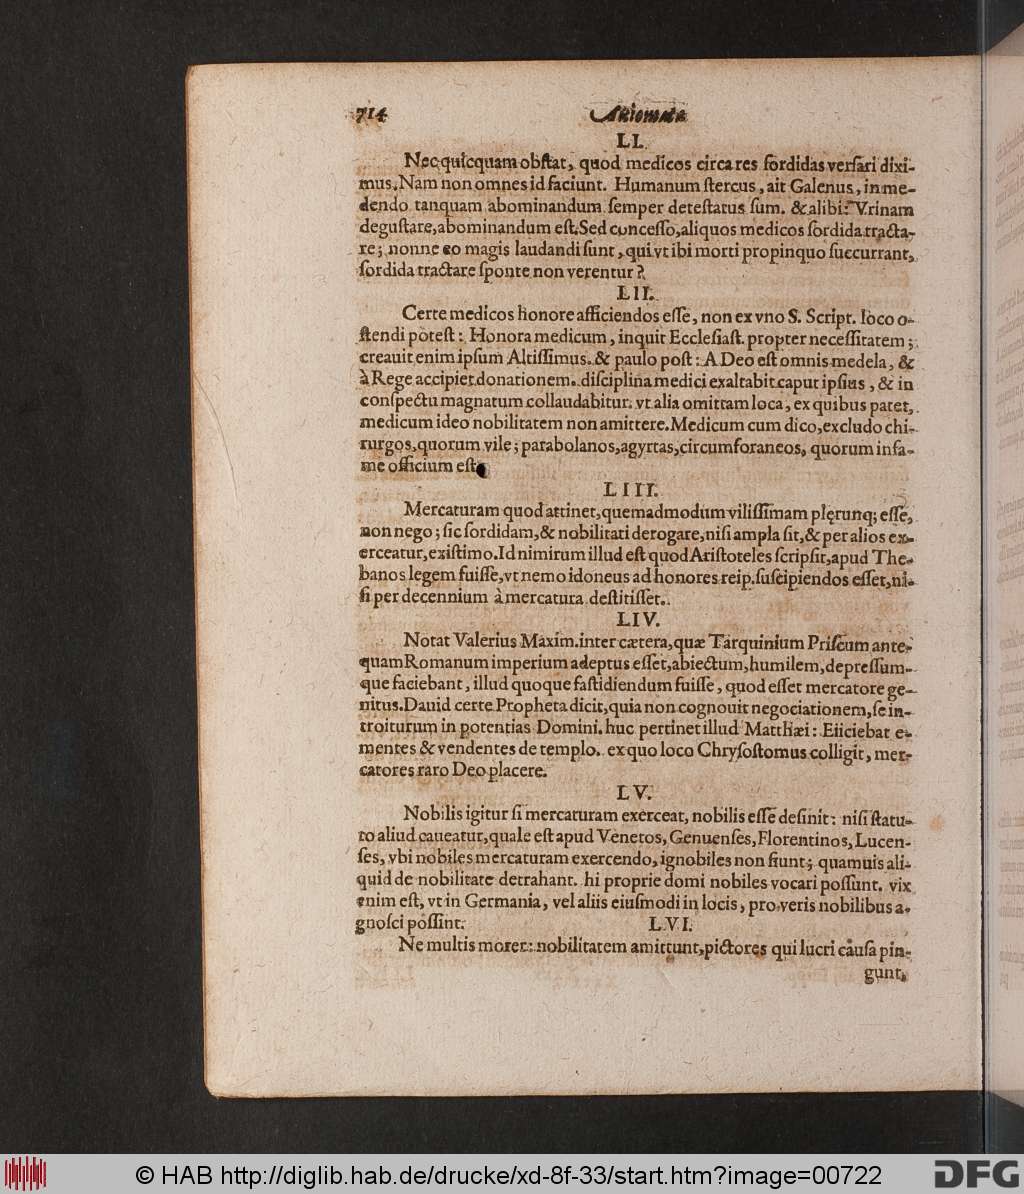 714 Axiomata
LI.
Nec quicquam obſtat, quod medicos circa res ſordidas verſari dixi-
mus. Nam non omnes id faciunt. Humanum ſtercus, ait Galenus, in me-
dendo tanquam abominandum ſemper deteſtatus ſum. & alibi: Vrinam
deguſtare, abominandum eſt. Sed conceſſo, aliquos medicos ſordida tracta-
re; nonne eo magis laudandi ſunt, qui vt ibi morti propinquo ſuccurrant,
ſordida tractare ſponte non verentur?
LII.
Certe medicos honore afficiendos eſſe, non ex vno S. Script. loco o-
ſtendi poteſt: Honora medicum, inquit Eccleſiaſt. propter neceſſitatem;
creauit enim ipſum Altiſſimus. & paulo poſt: A Deo eſt omnis medela, &
à Rege accipiet donationem. diſciplina medici exaltabit caput ipſius, & in
conſpectu magnatum collaudabitur. vt alia omittam loca, ex quibus patet,
medicum ideo nobilitatem non amittere. Medicum cum dico, excludo chi-
rurgos, quorum vile; parabolanos, agyrtas, circumforaneos, quorum infa-
me officium eſt
LIII.
Mercaturam quod attinet, quemadmodum viliſſimam plęrunq; eſſe,
non nego; ſic ſordidam, & nobilitati derogare, niſi ampla ſit, & per alios ex-
erceatur, exiſtimo. Id nimirum illud eſt quod Ariſtoteles ſcripſit, apud The-
banos legem fuiſſe, vt nemo idoneus ad honores reip. ſuſcipiendos eſſet, ni-
ſi per decennium à mercatura deſtitiſſet.
LIV.
Notat Valerius Maxim. inter cætera, quæ Tarquinium Priſcum ante-
quam Romanum imperium adeptus eſſet, abiectum, humilem, depreſſum-
que faciebant, illud quoque faſtidiendum fuiſſe, quod eſſet mercatore ge-
nitus. Dauid certe Propheta dicit, quia non cognouit negociationem, ſe in-
troiturum in potentias Domini. huc pertinet illud Matthæi: Eiiciebat e-
mentes & vendentes de templo. ex quo loco Chryſoſtomus colligit, mer-
catores raro Deo placere.
LV.
Nobilis igitur ſi mercaturam exerceat, nobilis eſſe deſinit: niſi ſtatu-
to aliud caueatur, quale eſt apud Venetos, Genuenſes, Florentinos, Lucen-
ſes, vbi nobiles mercaturam exercendo, ignobiles non fiunt; quamuis ali-
quid de nobilitate detrahant. hi proprie domi nobiles vocari poſſunt. vix
enim eſt, vt in Germania, vel aliis eiuſmodi in locis, pro veris nobilibus a-
gnoſci poſſint. LVI.
Ne multis morer: nobilitatem amittunt, pictores qui lucri cauſa pin-
gunt,
© HAB http://diglib.hab.de/drucke/xd-8f-33/start.htm?image=00722
DFG